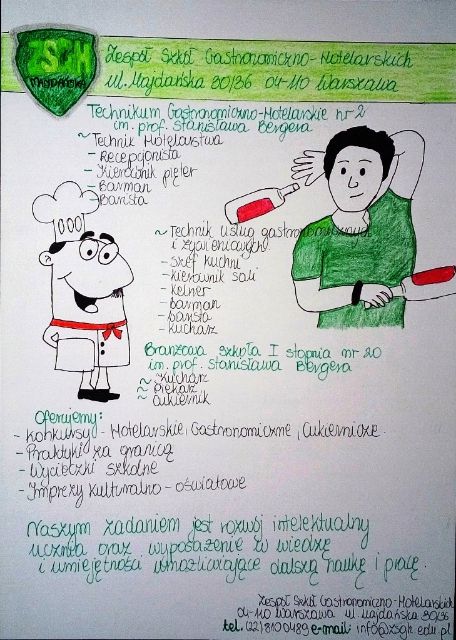 ZSGH
MAJDAŃSKA
Zespół Szkół Gastronomiczno-Hotelarskich
ul. Majdańska 30/36 04-110 Warszawa
Technikum Gastronomiczno-Hotelarskie nr 2
im. prof. Stanisława Bergera
~ Technik Hotelarstwa
- Recepcjonista
- Kierownik pięter
- Barman
- Barista
~ Technik usług gastronomicznych
i żywieniowych
- Szef kuchni
- Kierownik sali
- Kelner
- Barman
- Barista
- Kucharz
Branżowa szkoła I stopnia nr 20
im. prof. Stanisława Bergera
~ Kucharz
~ Piekarz
~ Cukiernik
Oferujemy:
- Konkursy - Hotelarskie, Gastronomiczne, Cukiernicze.
- Praktyki za granicą
- Wycieczki szkolne
- Imprezy kulturalno-oświatowe
Naszym zadaniem jest rozwój intelektualny
ucznia oraz wyposażenie w wiedzę
i umiejętności umożliwiające dalszą naukę i pracę.
Zespół Szkół Gastronomiczno-Hotelarskich
04-110 Warszawa ul. Majdańska 30/36
tel. (22) 8100489 e-mail: info@zsgh.edu.pl